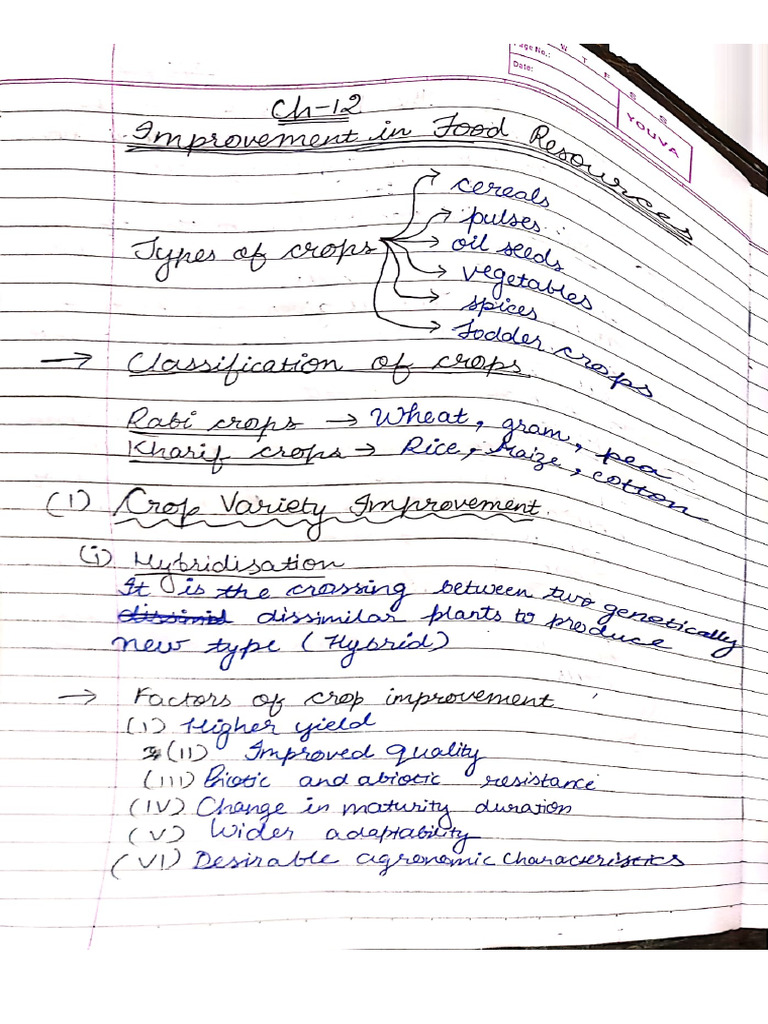 Page No.:
Date:
W T F S S
YOUVA
Ch-12
Improvement in Food Resources
Types of crops
cereals
pulses
oil seeds
vegetables
spices
fodder crops
→ Classification of crops
Rabi crops → Wheat, gram, pea
Kharif crops → Rice, Maize, cotton
(1) Crop Variety Improvement.
(i) Hybridisation
It is the crossing between two genetically
dissimilar plants to produce
new type (Hybrid)
→ Factors of crop improvement
(I) Higher yield
(II) Improved quality
(III) Biotic and abiotic resistance
(IV) Change in maturity duration
(V) Wider adaptability
(VI) Desirable agronomic characteristics